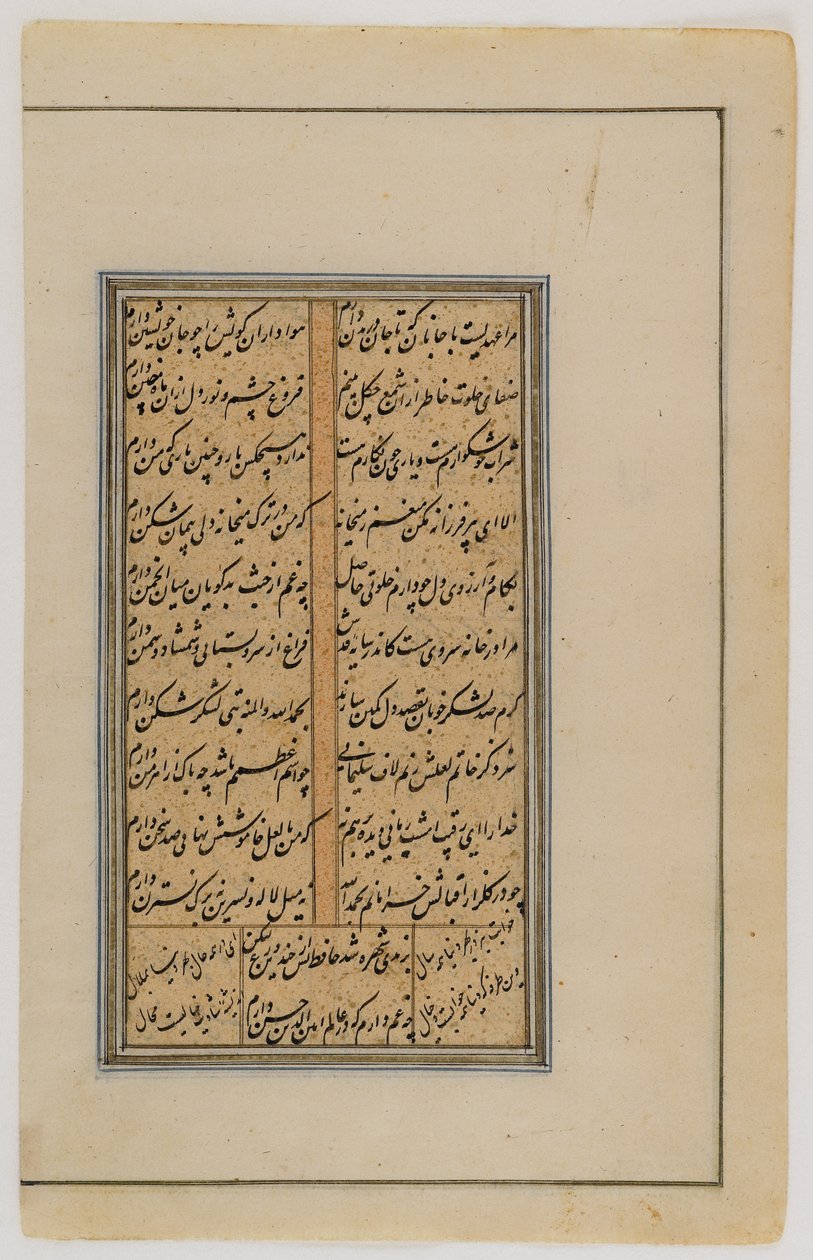 مرا عهدیست با جانان که تا جان در بدن دارم هواداران کویش را چو جان خویشتن دارم
صفای خلوت خاطر از آن شمع چکل بینم فروغ چشم و نور دل از آن ماه ختن دارم
شراب خوشکوارم هست و یاری چون نکارم هست ندارد هیچکس یار و چنین یاری که من دارم
الا ای پیر فرزانه مکن منعم ز میخانه که من در ترک میخانه دلی پیمان شکن دارم
بکام و آرزوی دل چو دارم خلوتی حاصل چه غم از خبث بدکویان میان انجمن دارم
مرا در خانه سروی هست کاندر سایه قدش فراغ از سرو بستانی و شمشاد و سمن دارم
کرم صد لشکر خوبان بقصد دل کمین سازند بحمدالله والمنه بتی لشکر شکن دارم
سزد کز خاتم لعلش زنم لاف سلیمانی چو اسم اعظمم باشد چه باک از اهرمن دارم
خدا را ای رقیب امشب زمانی دیده بر هم نه که من با لعل خاموشش نهانی صد سخن دارم
چو در کلزار اقبالش خرامانم بحمدالله نه میل لاله و نسرین نه برک نسترن دارم
برندی شهره شد حافظ پس از چندین ورع لیکن
چه غم دارم که در عالم امین الدین حسن دارم
وین طرفه که دنیا همه خوابیست و خیال
ای در همه حال
خیالیست محال